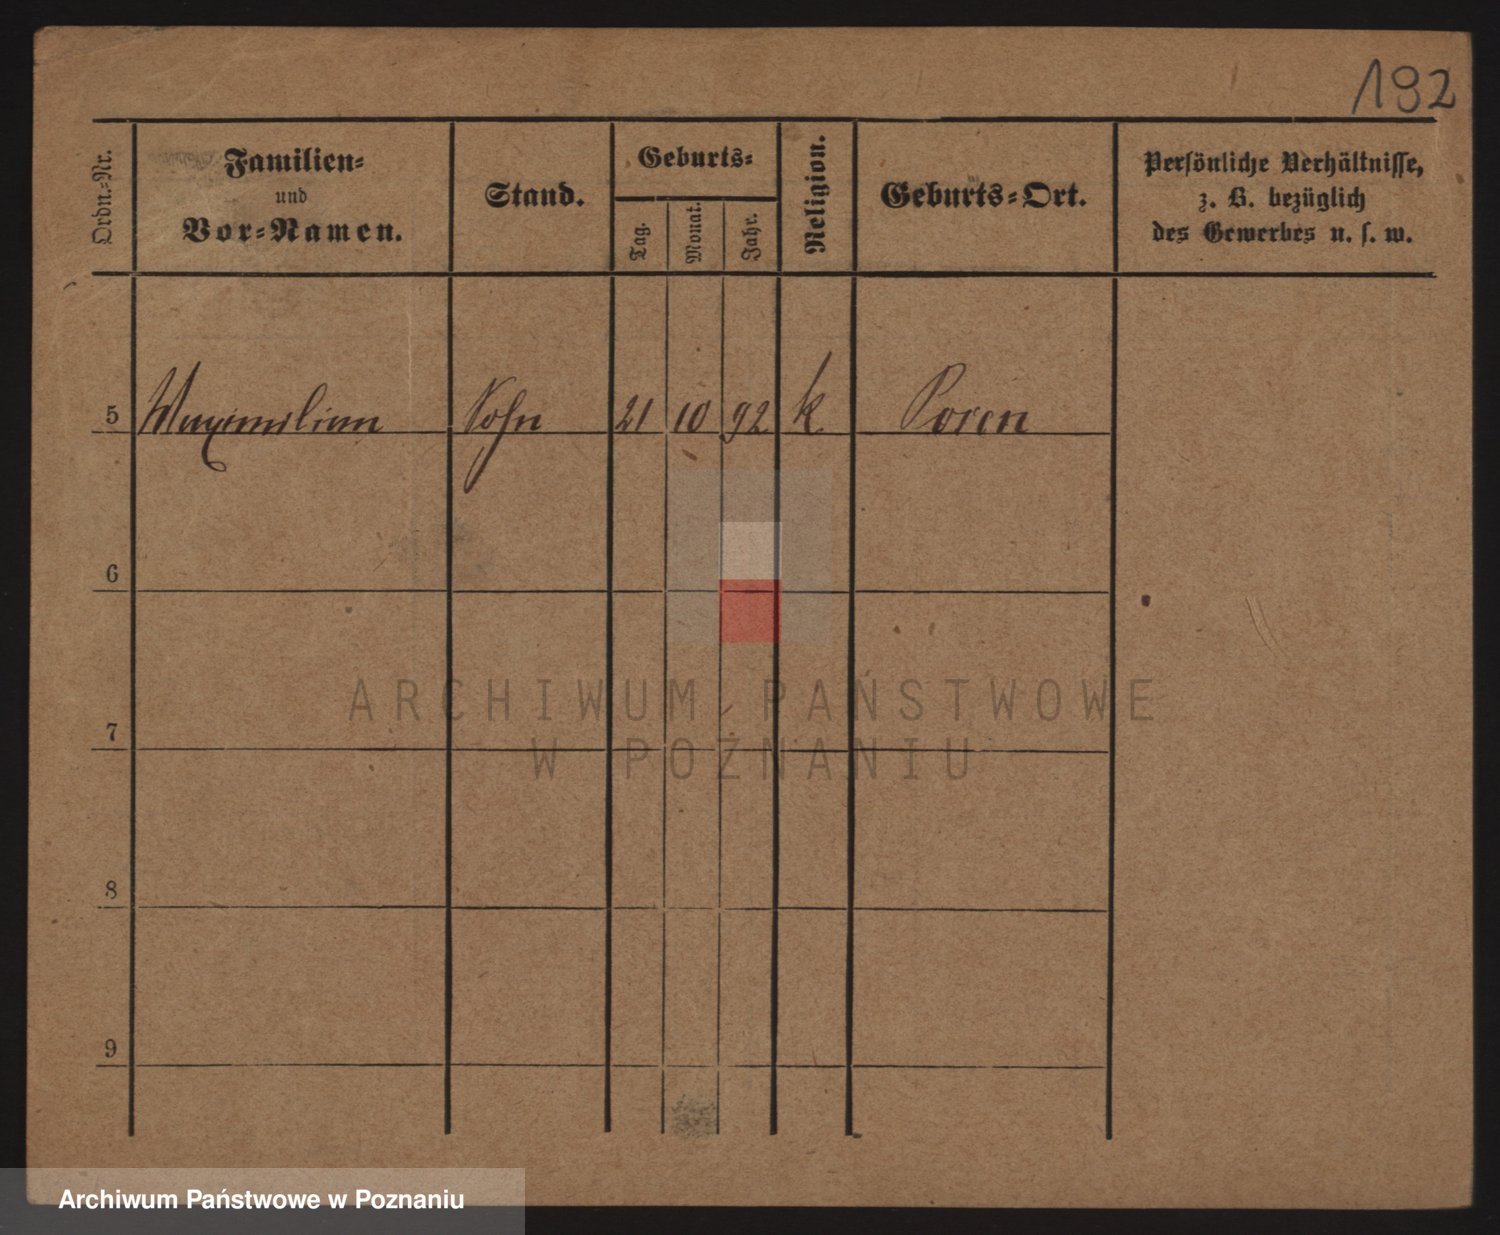 192
Ordn.-Nr.
Familien-
und
Vor-Namen.
Stand.
Geburts-
Tag.
Monat.
Jahr.
Religion.
Geburts-Ort.
Persönliche Verhältnisse,
z. B. bezüglich
des Gewerbes u. s. w.
5 Maximilian Sohn 21 10 92 k Posen
6
7
8
9
ARCHIWUM PAŃSTWOWE
W POZNANIU
Archiwum Państwowe w Poznaniu